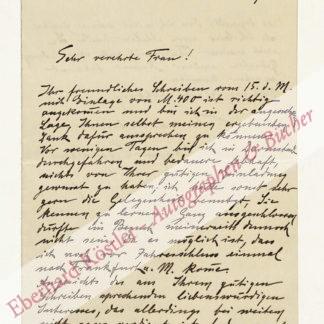 Sehr verehrte Frau!
Ihr freundliches Schreiben vom 15. d. M.
mit Einlage von M. 400 ist richtig
angekommen und bin ich in der
Lage, Ihnen selbst meinen ergebensten
Dank dafür aussprechen zu können.
Vor wenigen Tagen bin ich in
durchgefahren und bedauere
nichts von Ihrer gütigen Einladung
gewusst zu haben; ich sonst sehr
gern die Gelegenheit benutzt, Sie
kennen zu lernen. Ganz ausgeschlossen
dürfte ein Besuch meinerseits dennoch
nicht sein, da es möglich ist, dass
ich noch vor Jahresschluss einmal
nach Frankfurt a. M. komme.
des aus Ihrem gütigen
Schreiben sprechenden liebenswürdigen
Interesses, das allerdings bei weitem
Eberhard Köstler Autographen & Bücher